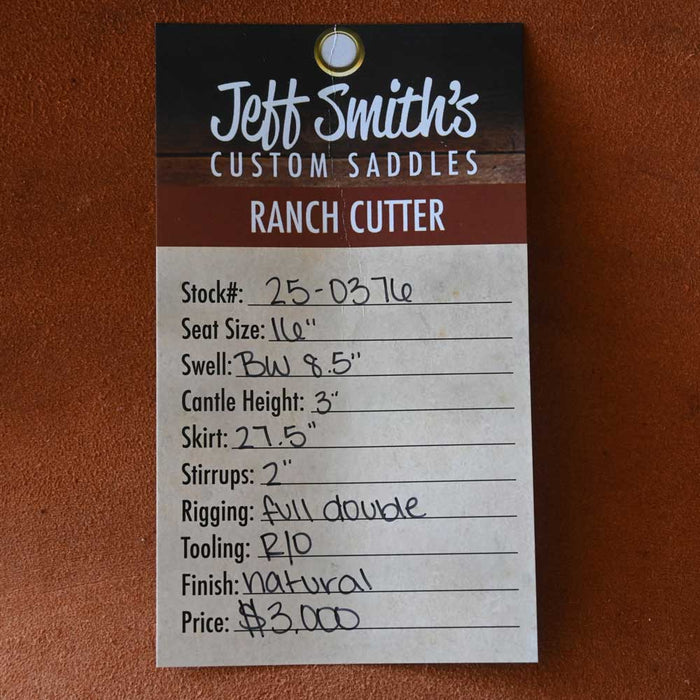 Jeff Smith's
CUSTOM SADDLES
RANCH CUTTER
Stock#: 25-0376
Seat Size: 16"
Swell: BW 8.5"
Cantle Height: 3"
Skirt: 27.5"
Stirrups: 2"
Rigging: full double
Tooling: R/O
Finish: natural
Price: $3,000